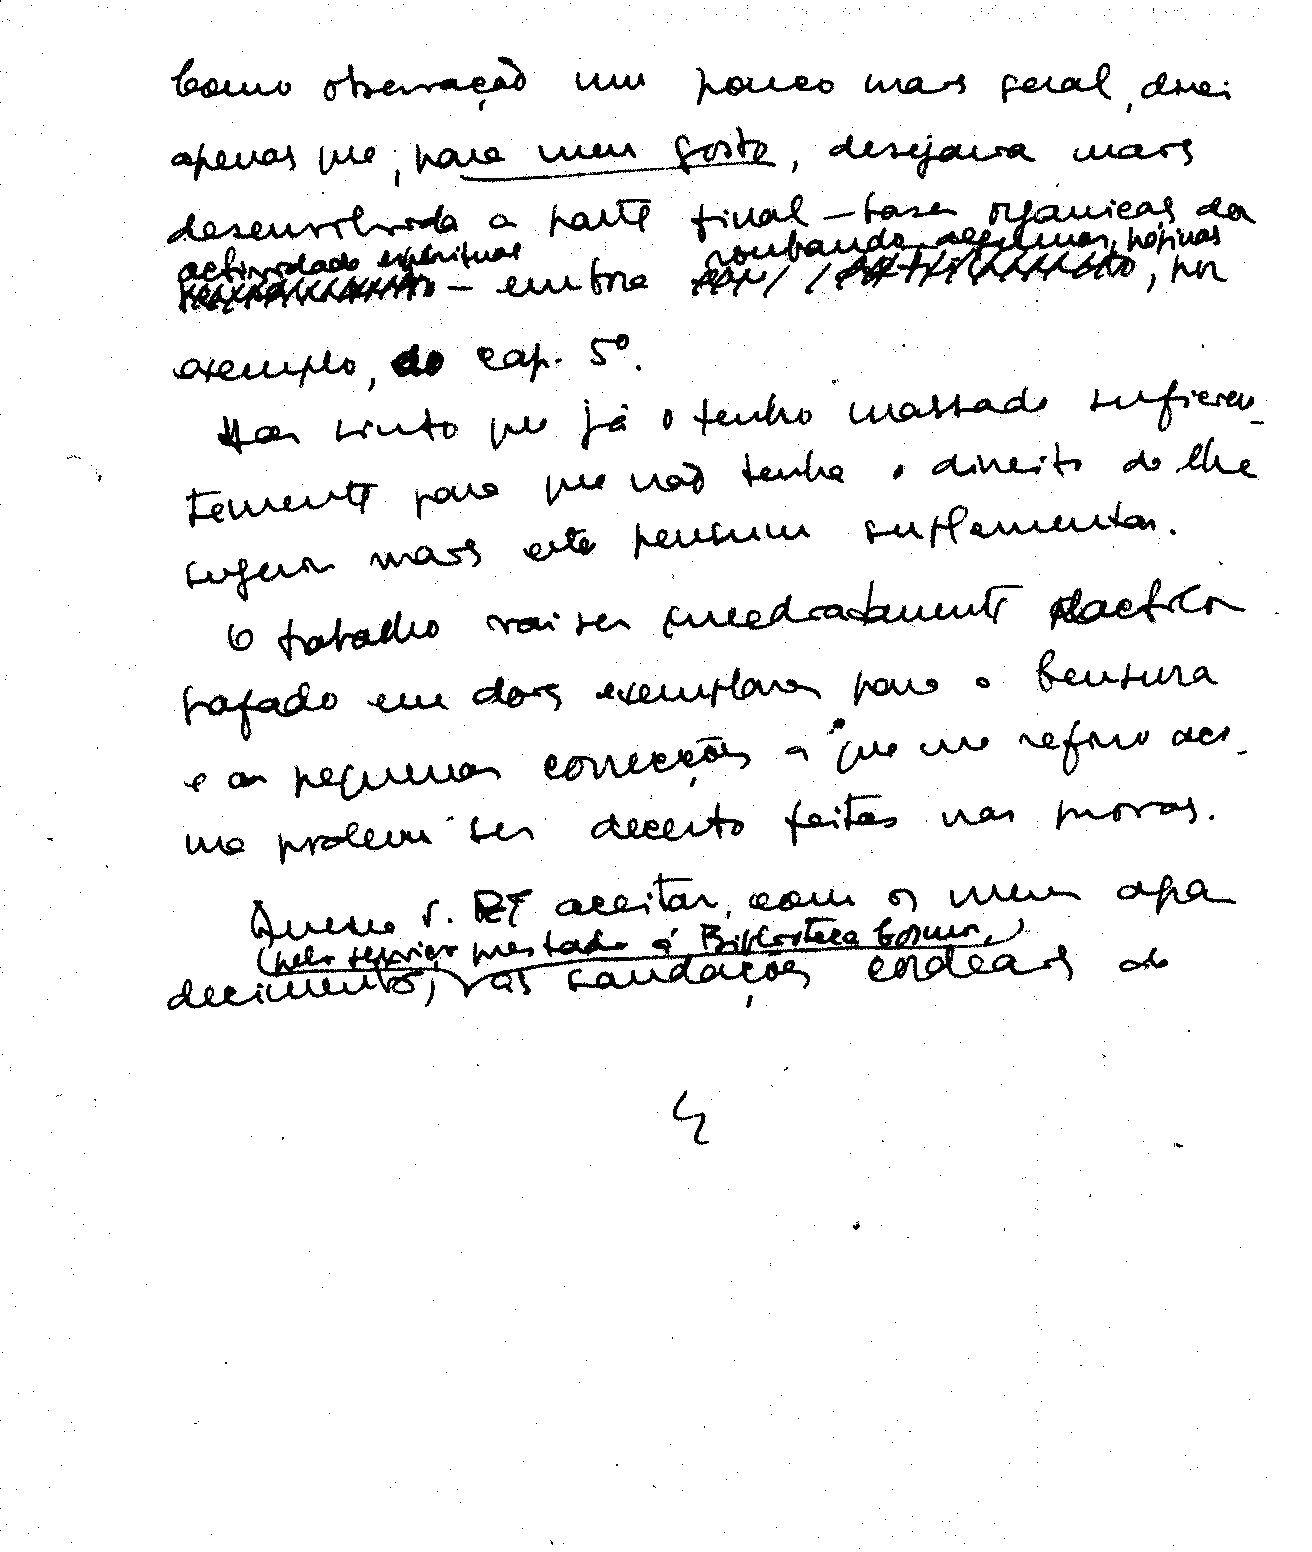 Como observação um pouco mais geral, direi
apenas que, para meu gosto, desejava mais
desenvolvida a parte final – bases orgânicas da
actividade espiritual roubando algumas páginas
– embora , por
exemplo, do cap. 5º.
Mas sinto que já o tenho massado suficien-
temente para que não tenha o direito de lhe
sugerir mais este pensum suplementar.
O trabalho vai ser imediatamente dactilo
grafado em dois exemplares para a Censura
e as pequenas correcções a que me refiro aci-
ma podem ser decerto feitas nas provas.
Queira V. Exª aceitar, com os meus agra
(pelo serviço prestado à Biblioteca Cosmos,)
decimentos, as saudações cordeais de